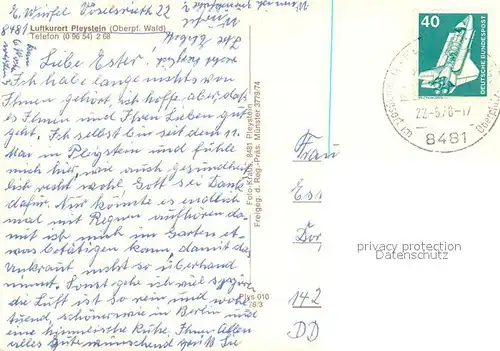 E. Wurfel Voselsrieth 22
8481
Luftkurort Pleystein (Oberpf. Wald)
Telefon (0 96 54) 2 68
Liebe Ester.
Ich habe lange nichts von
Ihnen gehört, ich hoffe aber, daß
es Ihnen und Ihren Lieben gut
geht. Ich selbst bin seit dem 11.
Mai in Pleystein und fühle
mich hier, wie auch gesundheit-
lich recht wohl Gott sei Dank
dafür. Nur könnte es endlich
mal mit Regnen aufhören da-
mit ich mich im Garten et-
was betätigen kann damit das
Unkraut nicht so überhand
nimmt. Sonst gehe ich viel spazieren
die Luft ist so rein und wohl
tuend, schöner wie in Berlin und
eine himmlische Ruhe. Ihnen Allen
alles Gute wünschend grüßt Sie
Foto-Kraus, 8481 Pleystein
Freigeg. d. Reg.-Präs. Münster 3778/74
Plys 010
78/3
40
DEUTSCHE BUNDESPOST
22.-5.78-17
8481
Frau
Es
Do
142
DD
privacy protection
Datenschutz